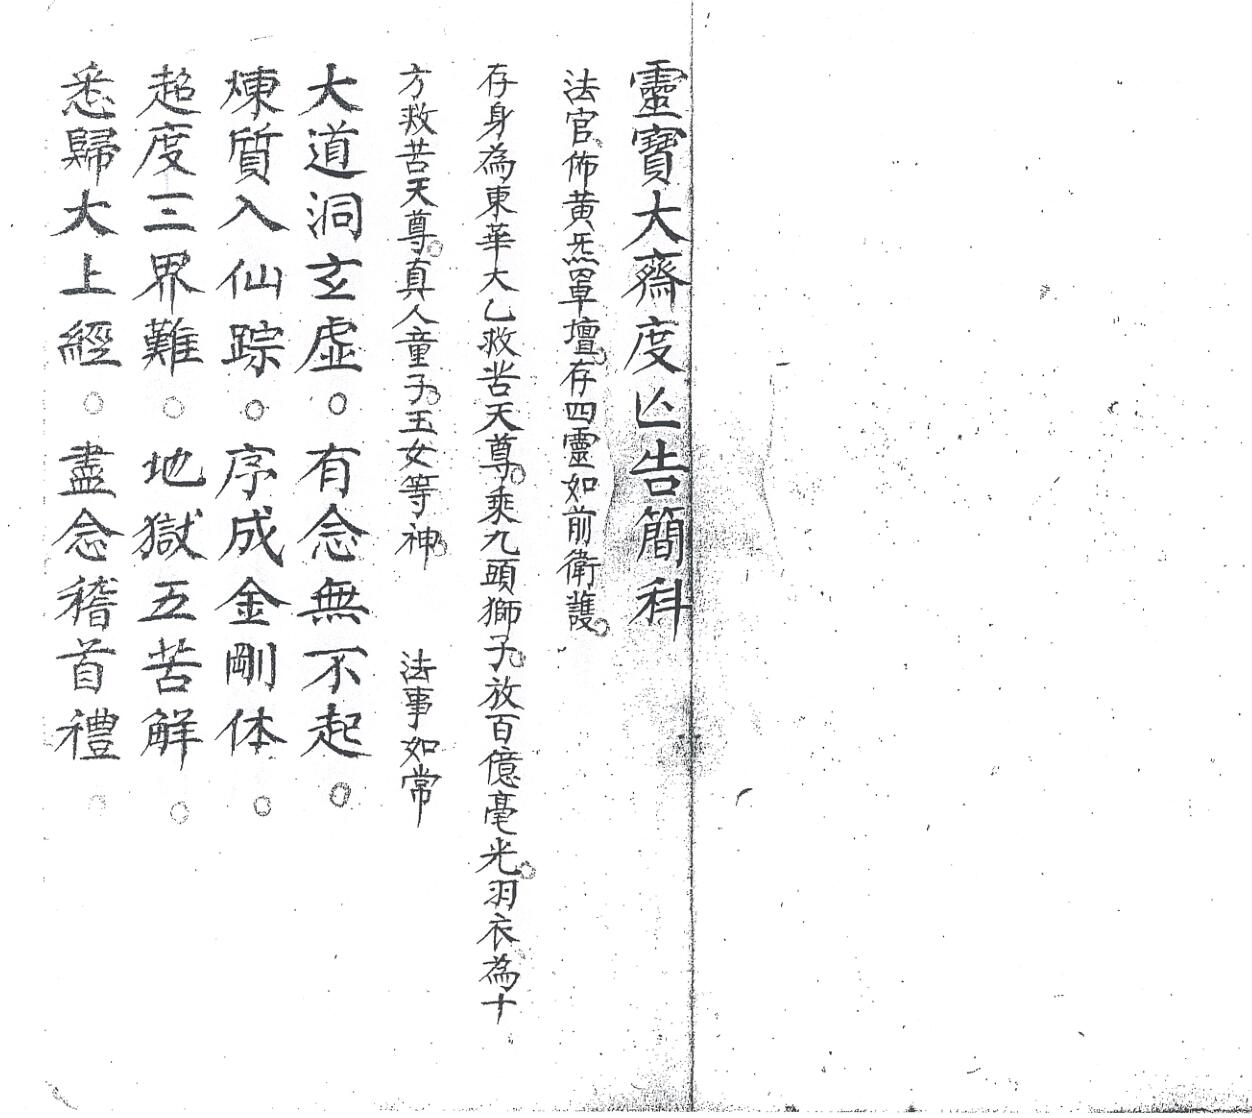 靈寶大齋度亾告簡科
法官佈黄炁罩壇。存四靈如前衛護。
存身為東華大乙救苦天尊。乘九頭獅子。放百億毫光。羽衣為十
方救苦天尊。真人童子。玉女等神。　法事如常
大道洞玄虛。有念無不起。
煉質入仙踪。序成金剛体。
超度三界難。地獄五苦解。
悉歸大上經。盡念稽首禮。